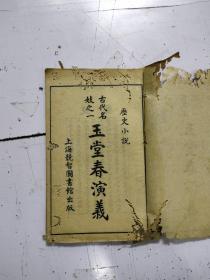 歷史小說
古代名妓之一
玉堂春演義
上海競智圖書館出版